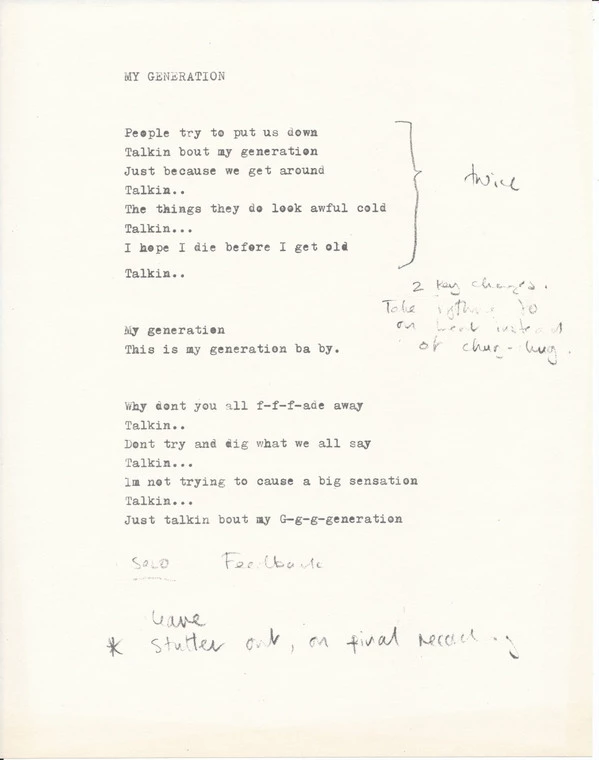 MY GENERATION
People try to put us down
Talkin bout my generation
Just because we get around
Talkin..
The things they do look awful cold
Talkin...
I hope I die before I get old
Talkin..
twice
2 key changes.
Take rythm to
on beat instead
of chug-chug.
My generation
This is my generation ba by.
Why dont you all f-f-f-ade away
Talkin..
Dont try and dig what we all say
Talkin...
Im not trying to cause a big sensation
Talkin...
Just talkin bout my G-g-g-generation
SOLO Feedback
leave
* Stutter out, on final recording